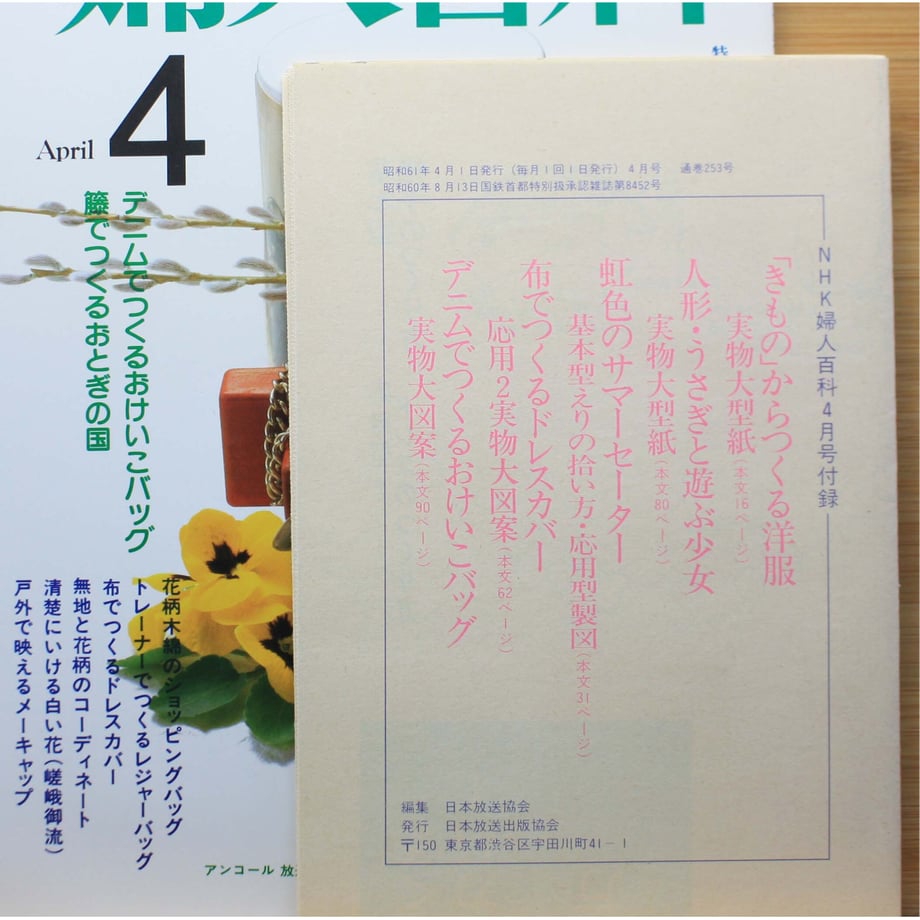 婦人百科
4
April
デニムでつくるおけいこバッグ
籐でつくるおとぎの国
花柄木綿のショッピングバッグ
トレーナーでつくるレジャーバッグ
布でつくるドレスカバー
無地と花柄のコーディネート
清楚にいける白い花(嵯峨御流)
戸外で映えるメーキャップ
アンコール
昭和61年4月1日発行(毎月1回1日発行)4月号 通巻253号
昭和60年8月13日国鉄首都特別扱承認雑誌第8452号
NHK婦人百科4月号付録
「きもの」からつくる洋服
実物大型紙(本文16ページ)
人形・うさぎと遊ぶ少女
実物大型紙(本文80ページ)
虹色のサマーセーター
基本型えりの拾い方・応用型製図(本文31ページ)
布でつくるドレスカバー
応用2実物大図案(本文62ページ)
デニムでつくるおけいこバッグ
実物大図案(本文90ページ)
編集 日本放送協会
発行 日本放送出版協会
〒150 東京都渋谷区宇田川町41-1